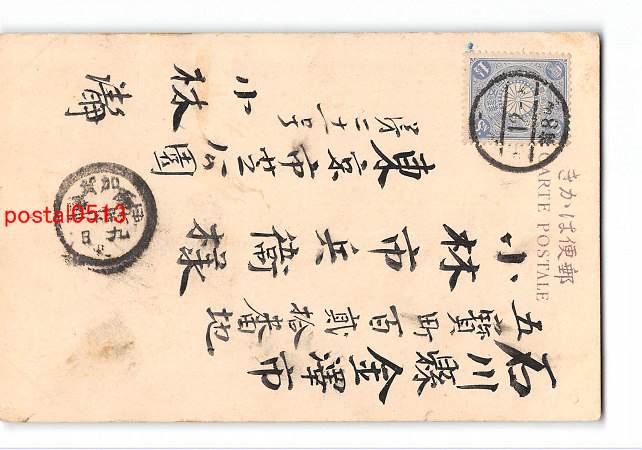 郵便はかき
CARTE POSTALE
石川縣金澤市
五寶町百貳拾番地
小林市兵衞様
東京市芝公園
第二十一号
小林
postal0513